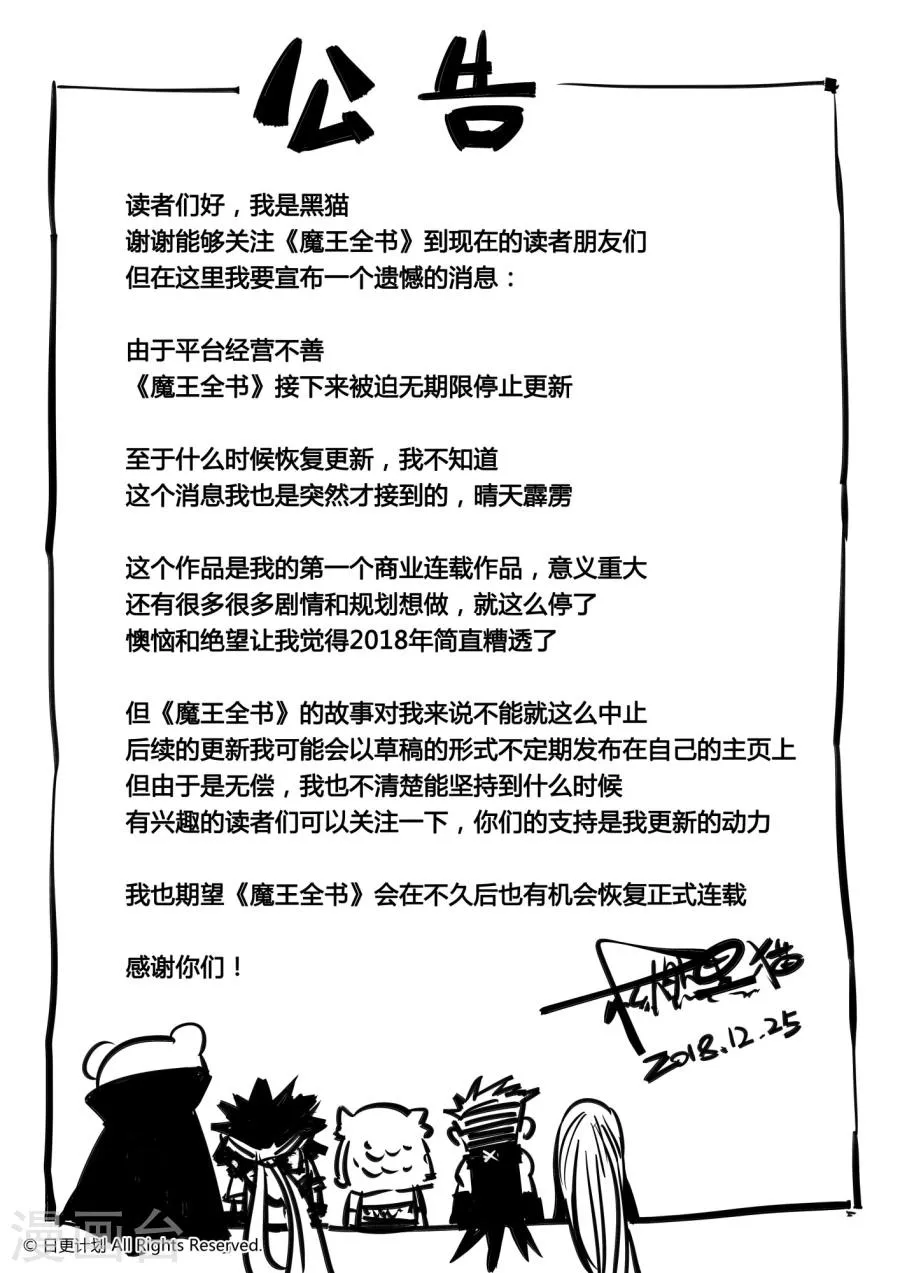 公告
读者们好，我是黑猫
谢谢能够关注《魔王全书》到现在的读者朋友们
但在这里我要宣布一个遗憾的消息：
由于平台经营不善
《魔王全书》接下来被迫无期限停止更新
至于什么时候恢复更新，我不知道
这个消息我也是突然才接到的，晴天霹雳
这个作品是我的第一个商业连载作品，意义重大
还有很多很多剧情和规划想做，就这么停了
懊恼和绝望让我觉得2018年简直糟透了
但《魔王全书》的故事对我来说不能就这么中止
后续的更新我可能会以草稿的形式不定期发布在自己的主页上
但由于是无偿，我也不清楚能坚持到什么时候
有兴趣的读者们可以关注一下，你们的支持是我更新的动力
我也期望《魔王全书》会在不久后也有机会恢复正式连载
感谢你们！
黑猫
2018.12.25
漫画台
© 日更计划 All Rights Reserved.